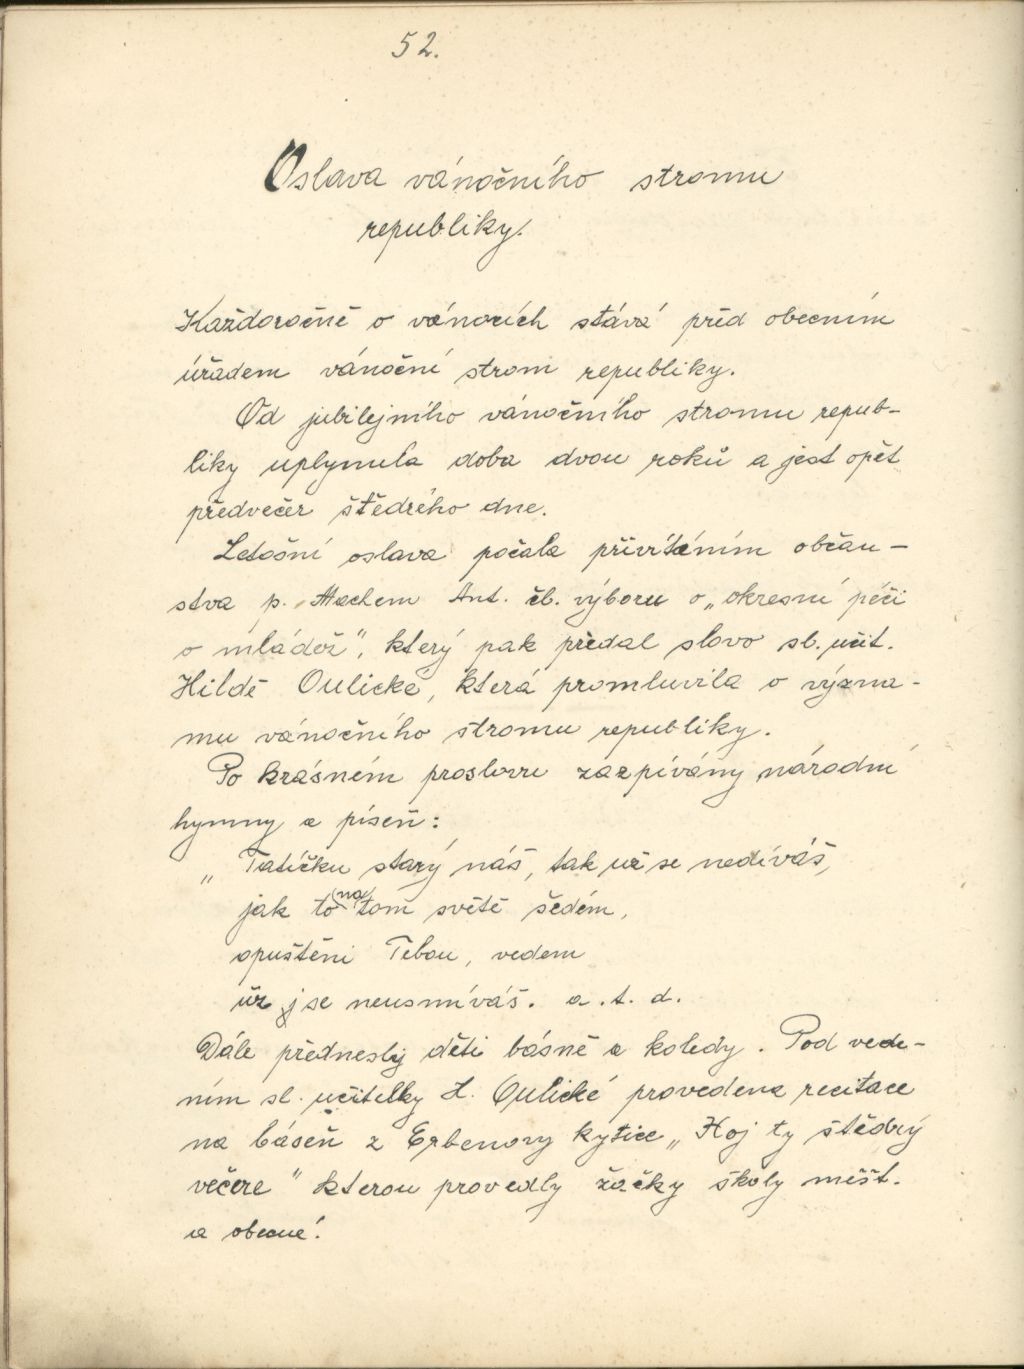 52.
Oslava vánočního stromu
republiky.
Každoročně o vánocích stává před obecním
úřadem vánoční strom republiky.
Od jubilejního vánočního stromu repub-
liky uplynula doba dvou roků a jest opět
předvečer štědrého dne.
Letošní oslava počala přivítáním občan-
stva p. Machem Ant. čl. výboru o „okresní péči
o mládež", který pak předal slovo sl. učit.
Hildě Oulické, která promluvila o význa-
mu vánočního stromu republiky.
Po krásném proslovu zazpívány národní
hymny a píseň:
„Tatíčku starý náš, tak už se nedíváš,
jak to (na) tom světě šedém,
opuštěni Tebou, vedem
už se neusmíváš. a. t. d.
Dále přednesly děti básně a koledy. Pod vede-
ním sl. učitelky H. Oulické provedena recitace
na báseň z Erbenovy kytice „Hoj ty štědrý
večere" kterou provedly žačky školy měšt.
a obecné.